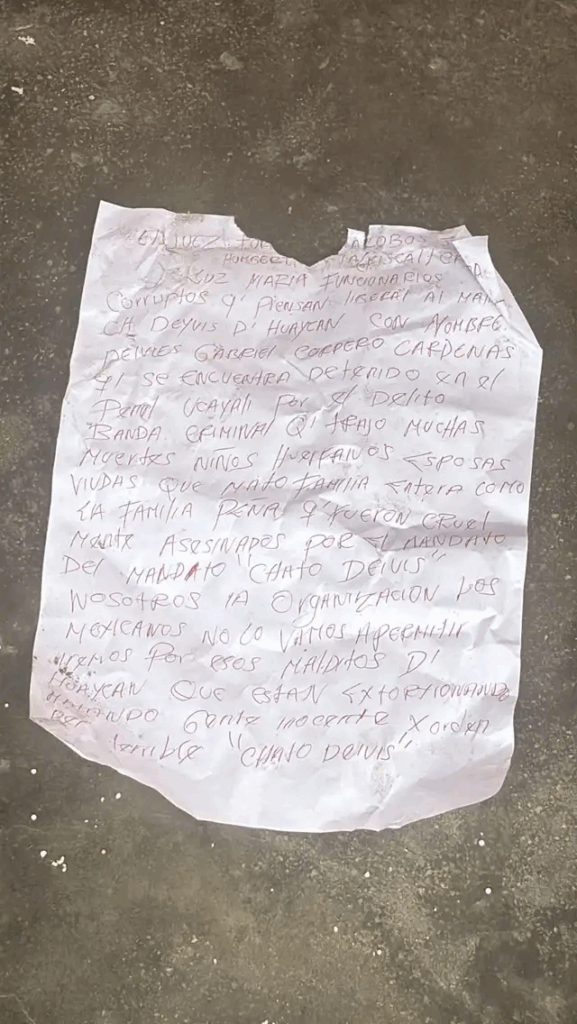 JUEZ JACOBO
HUMBER FISCAL
DE LUZ MARIA FUNCIONARIOS
Corruptos q' piensan liberar al mal
DEYVIS D' HUAYCAN CON NOMBRE
DEIVIES GABRIEL CORDERO CARDENAS
q' SE ENCUENTRA Detenido en el
Penal Ucayali por el Delito
BANDA CRIMINAL Q' TRAJO MUCHAS
Muertes NIÑOS HUERFANOS ESPOSAS
VIUDAS QUE MATO FAMILIA ENTERA COMO
LA FAMILIA PEÑA q' FUERON CRUEL
Mente ASESINADOS POR el MANDATO
Del MANDATO "CHATO DEIVIS"
NOSOTROS LA ORGANIZACION LOS
MEXICANOS NO LO VAMOS APERMITIR
iremos por esos MALDITOS D'
HUAYCAN QUE ESTAN EXTORCIONANDO
MATANDO Gente inocente X orden
Del terrible "CHATO DEIVIS"